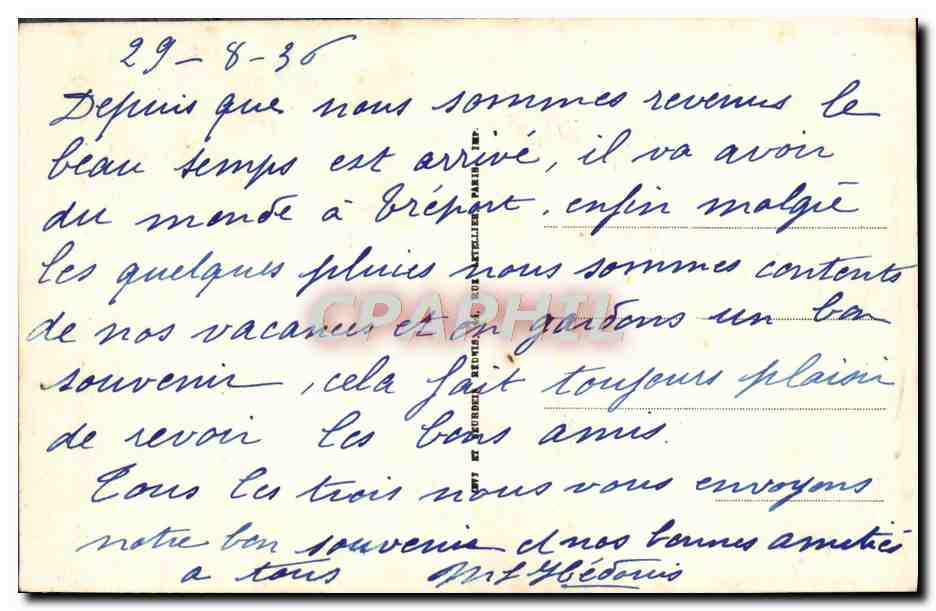 29-8-36
Depuis que nous sommes revenus le
beau temps est arrivé, il va avoir
du monde à Tréport, enfin malgré
les quelques pluies nous sommes contents
de nos vacances et en gardons un bon
souvenir, cela fait toujours plaisir
de revoir les bons amis.
Tous les trois nous vous envoyons
notre bon souvenir et nos bonnes amitiés
a tous
CPAPHIL
RÉUNIS
LETELLIER PARIS IMP.